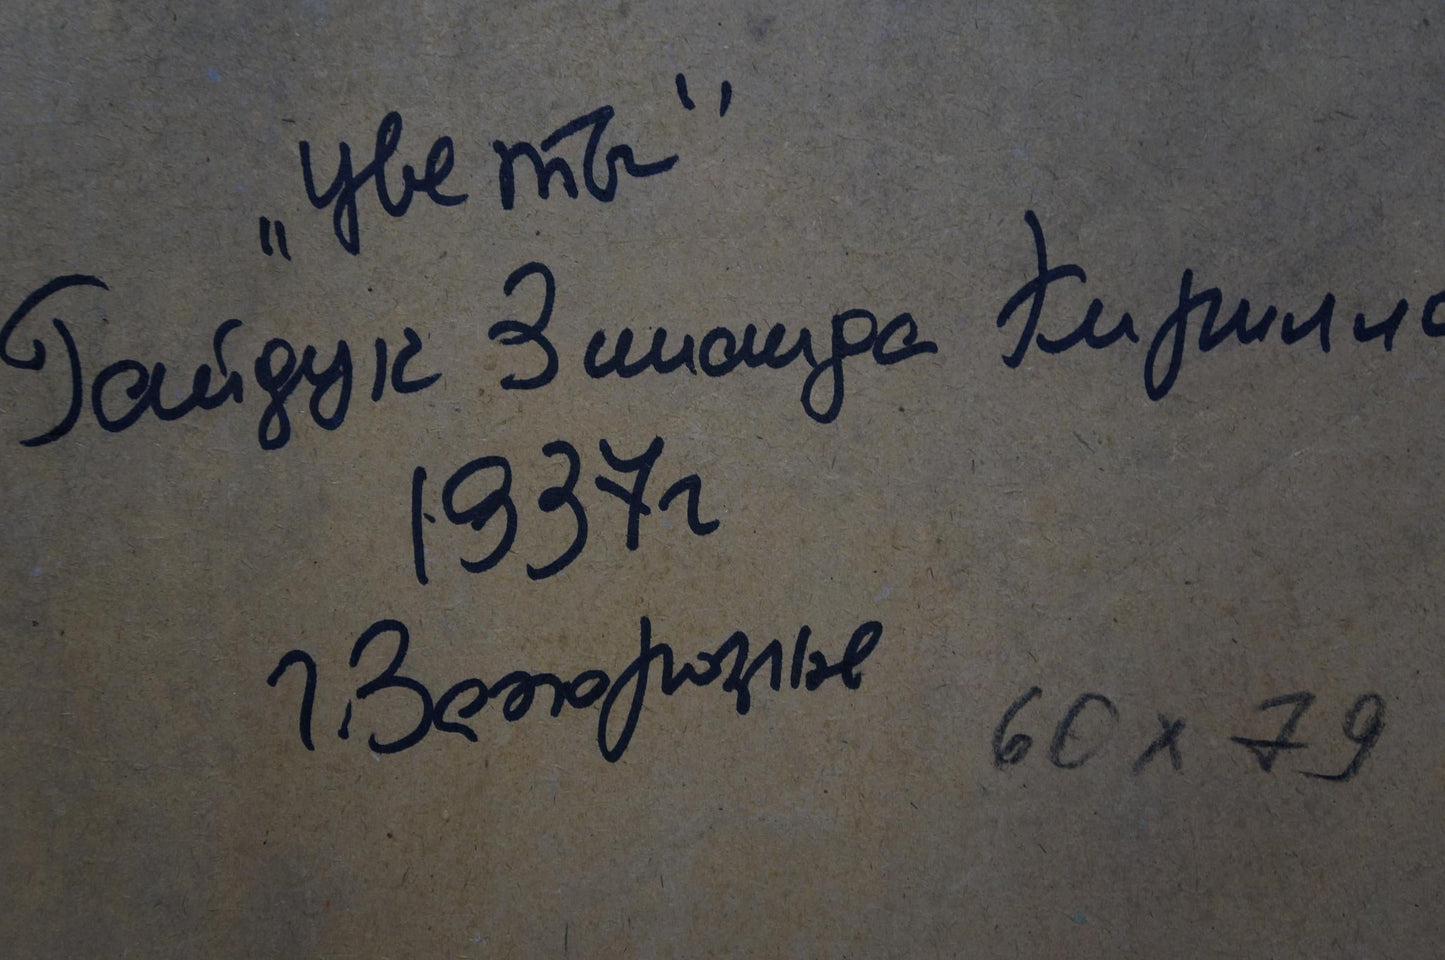 „Цветы"
Гайдук Зинаида Кирилло
1937г
г. Запорожье
60 х 79